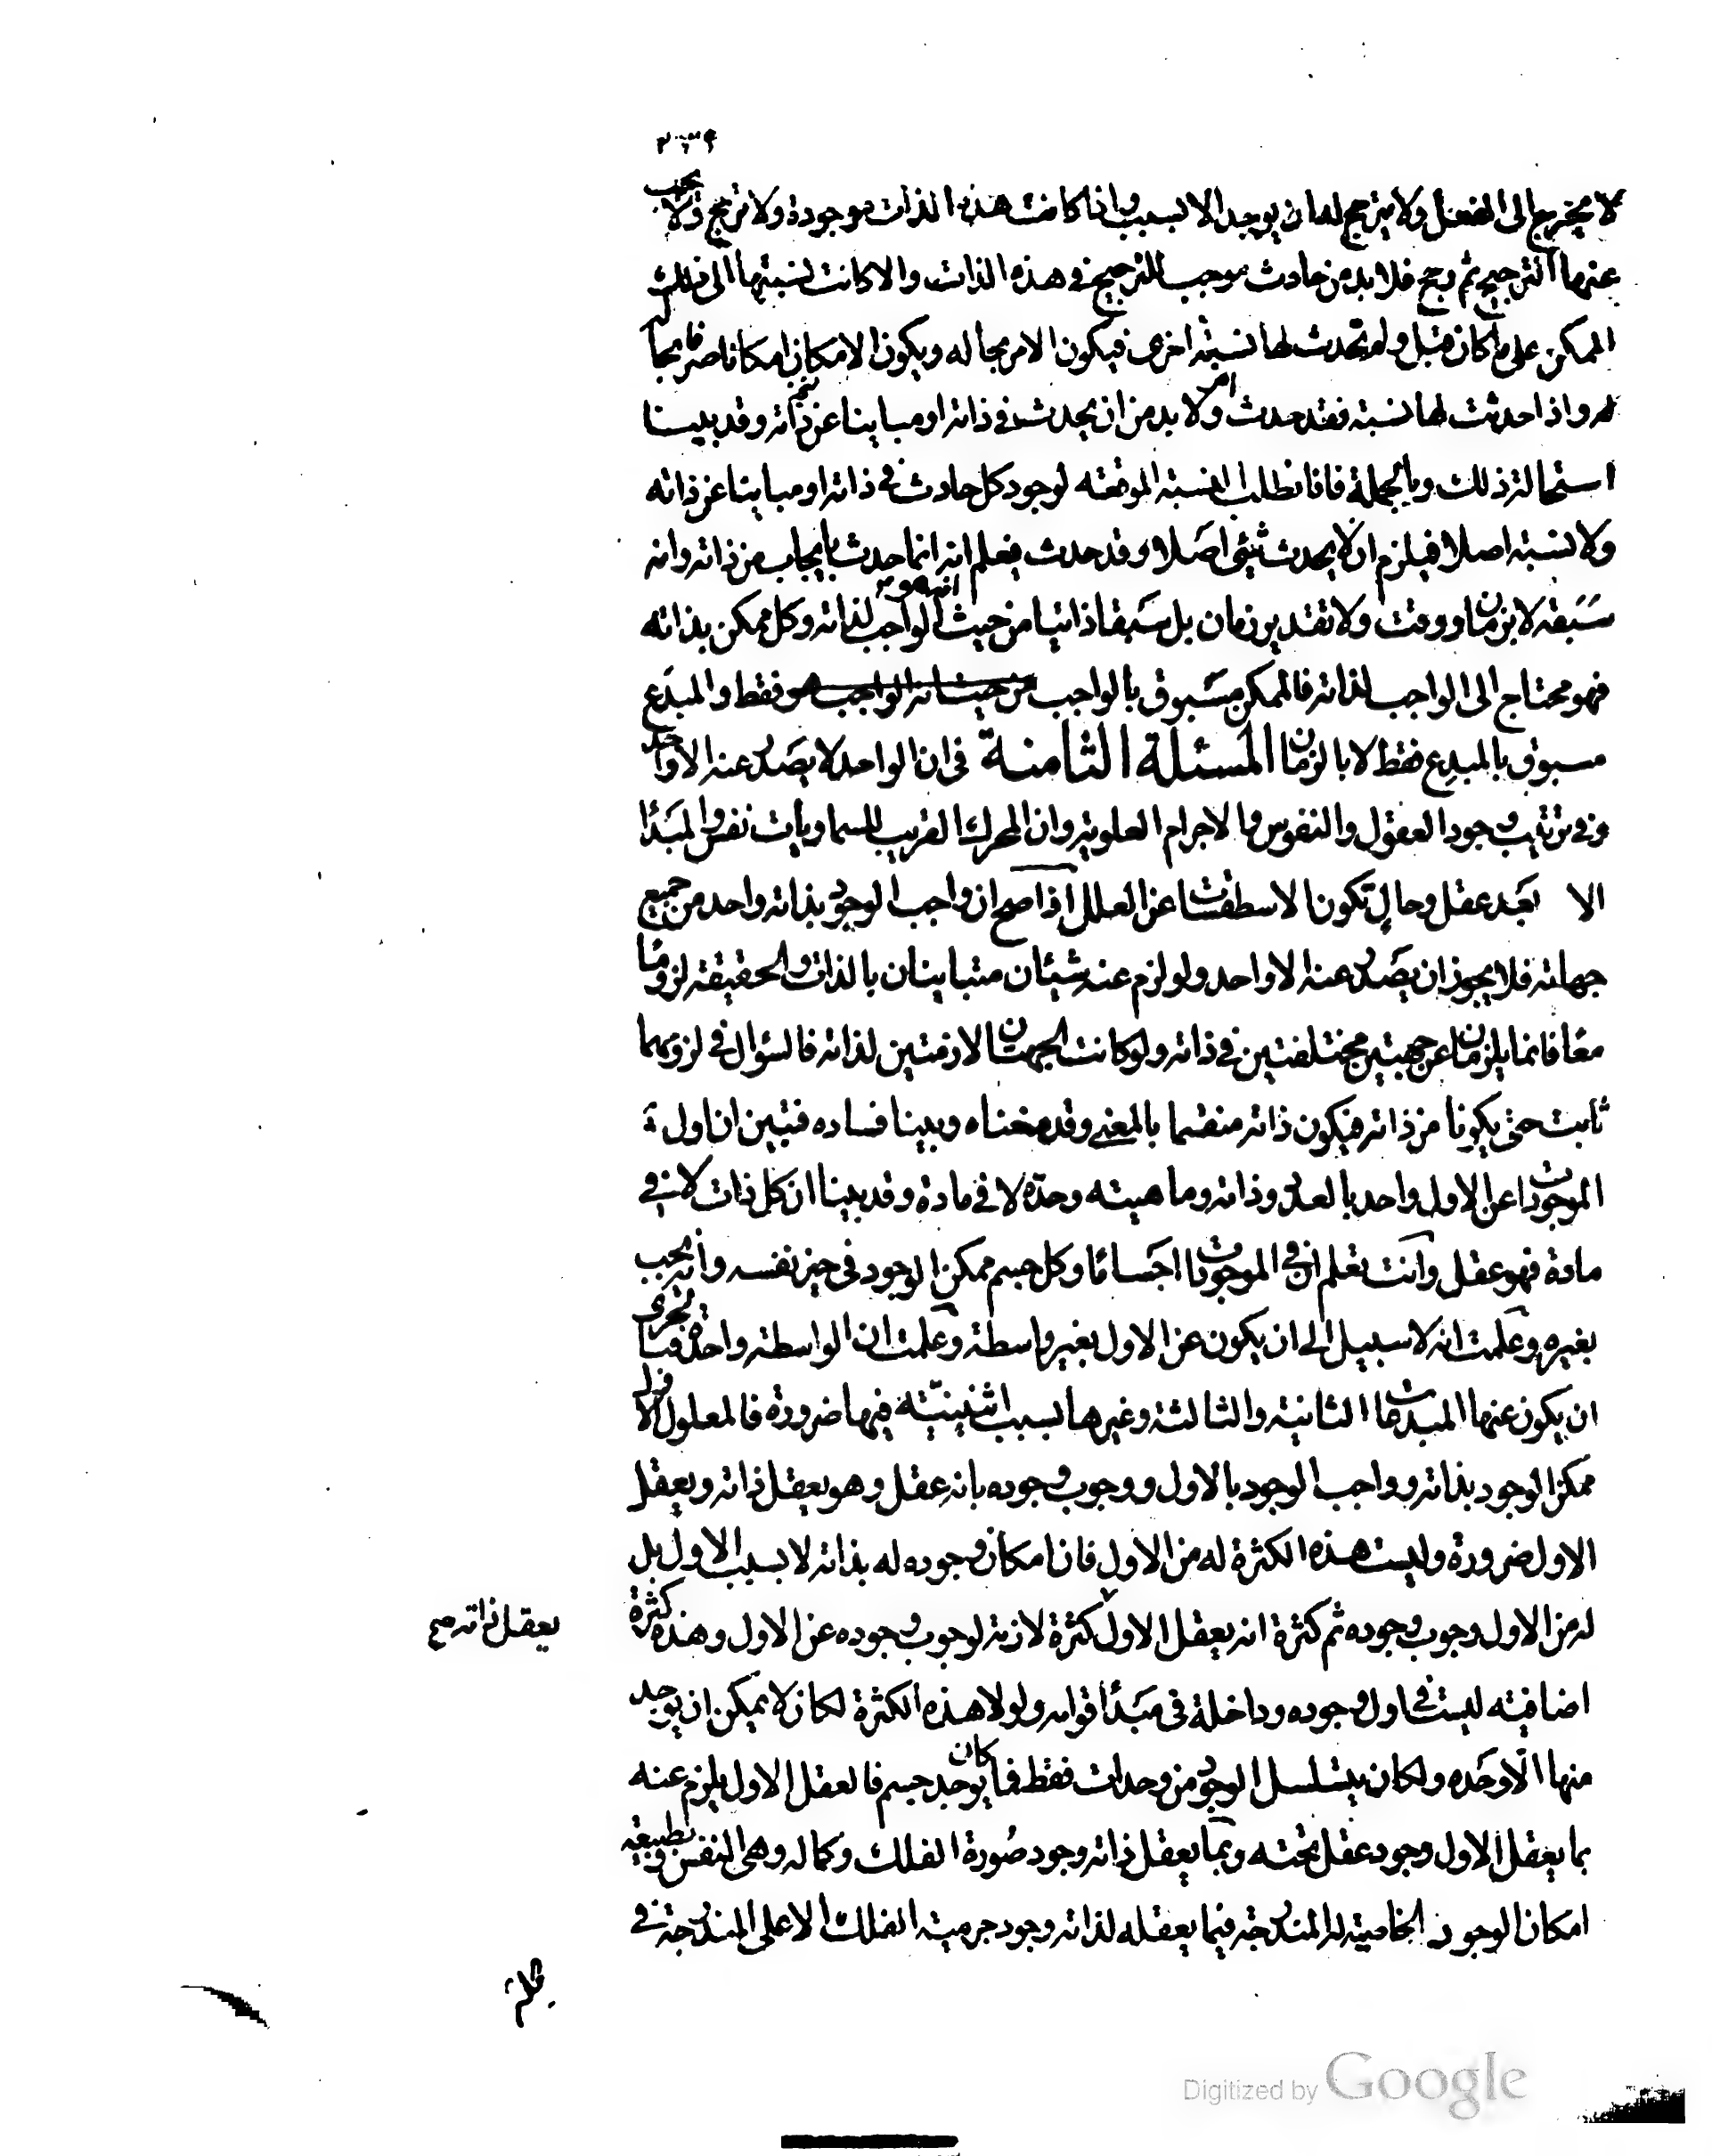 ٢٣٩
لا يخرج الى الفعل ولا يترجح لها ان يوجد الا بسبب واذا كانت هذه الذات موجودة ولا ترجح ولا يجب
عنها الترجيح ثم رجح فلا بد من حادث موجب للترجيح فى هذه الذات والا كانت نسبتها الى ذلك
الممكن على ما كان قبل ولم تحدث لها نسبة اخرى فيكون الامر بحاله ويكون الامكان امكانا صرفا بحا
له واذا حدثت لها نسبة فقد حدث امر ولا بد من ان يحدث فى ذاته او مباينا عن ذاته وقد بينا
استحالة ذلك وبالجملة فانا نطلب النسبة الموقعه لوجود كل حادث فى ذاته او مباينا عن ذاته
ولا نسبة اصلا فيلزم ان لا يحدث شيئ اصلا وقد حدث فعلم انه انما حدث بايجاب من ذاته وانه
سبقه لا بزمان ووقت ولا تقدير زمان بل سبقا ذاتيا من حيث انه هو الواجب لذاته وكل ممكن بذاته
فهو محتاج الى الواجب لذاته فالممكن مسبوق بالواجب من حيث انه الواجب هو فقط والمبدع
مسبوق بالمبدع فقط لا بالزمان المسئلة الثامنة فى ان الواحد لا يصدر عنه الا واحد
وفى ترتيب وجود العقول والنفوس والاجرام العلوية وان المحرك القريب للسماويات نفس والمبدا
الا بعد عقل وحال تكون الاسطقسات عن العلل اذا صح ان واجب الوجود بذاته واحد من جميع
جهاته فلا يجوز ان يصدر عنه الا واحد ولو لزم عنه شيئان متباينان بالذات والحقيقة لزوما
معا فانما يلزمان عن جهتين مختلفتين فى ذاته ولو كانت الجهتان لازمتين لذاته فالسؤال فى لزومهما
ثابت حتى يكونا من ذاته فيكون ذاته منقسما بالمعنى وقد منعناه وبينا فساده فتبين ان اول
الموجودات عن الاول واحد بالعدد وذاته وماهيته وحدة لا فى مادة وقد بينا ان كل ذات لا فى
مادة فهو عقل وانت تعلم ان فى الموجودات اجساما وكل جسم ممكن الوجود فى حيز نفسه وانه يجب
بغيره وعلمت انه لا سبيل الى ان يكون عن الاول بغير واسطة وعلمت ان الواسطة واحدة فبالحرى
ان يكون عنها المبدعات الثانية والثالثة وغيرها بسبب اثنينية فيها ضرورة فالمعلول الاول
ممكن الوجود بذاته وواجب الوجود بالاول ووجوب وجوده بانه عقل وهو يعقل ذاته ويعقل
الاول ضرورة وليست هذه الكثرة له من الاول فان امكان وجوده له بذاته لا بسبب الاول بل
له من الاول وجوب وجوده ثم كثرة انه يعقل الاول كثرة لازمة لوجوب وجوده عن الاول وهذه كثرة
يعقل ذاته صح
اضافية ليست فى اول وجوده وداخلة فى مبدأ قوامه ولولا هذه الكثرة لكان لا يمكن ان يوجد
منها الا وحدة ولكان يتسلسل الوجود من وحدات فقط فما كان يوجد جسم فالعقل الاول يلزم عنه
بما يعقل الاول وجود عقل تحته وبما يعقل ذاته وجود صورة الفلك وكماله وهى النفس وبطبيعة
امكان الوجود الخاصية له المندرجة فيما يعقله لذاته وجود جرمية الفلك الاعلى المندرجة فى
Digitized by Google